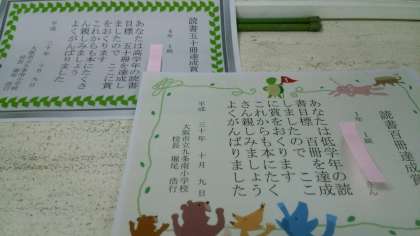 読書五十冊達成賞
あなたは高学年の読書
目標 五十冊を達成し
ましたので ここに賞
をおくります
これからも本にたくさ
ん親しみましょう
よくがんばりました
読書百冊達成賞
さん
あなたは低学年の読
書目標 百冊を達成
しましたので ここ
に賞をおくります
これからも本にたく
さん親しみましょう
よくがんばりました
平成 三十年 十月 九日
大阪市立九条南小学校
校長 堀尾 浩行